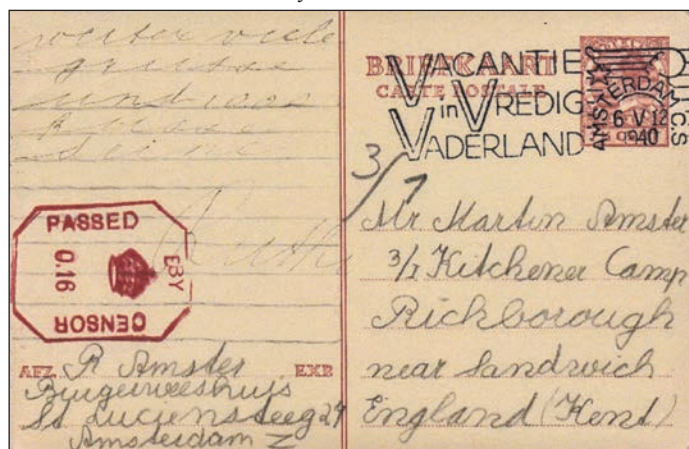 weiter viele
grüsse
und 1000
Küsse
deine
Ruth
PASSED
BY
0.16
CENSOR
AFZ. R Amster EXP.
Burgerweeshuis
St Luciensteeg 27
Amsterdam Z
BRIEFKAART
CARTE POSTALE
VACANTIE
in VREDIG
VADERLAND
AMSTERDAM C.S
6 V 12
1940
3/1
Mr Martin Amster
3/I Kitchener Camp
Richborough
near Sandwich
England (Kent)